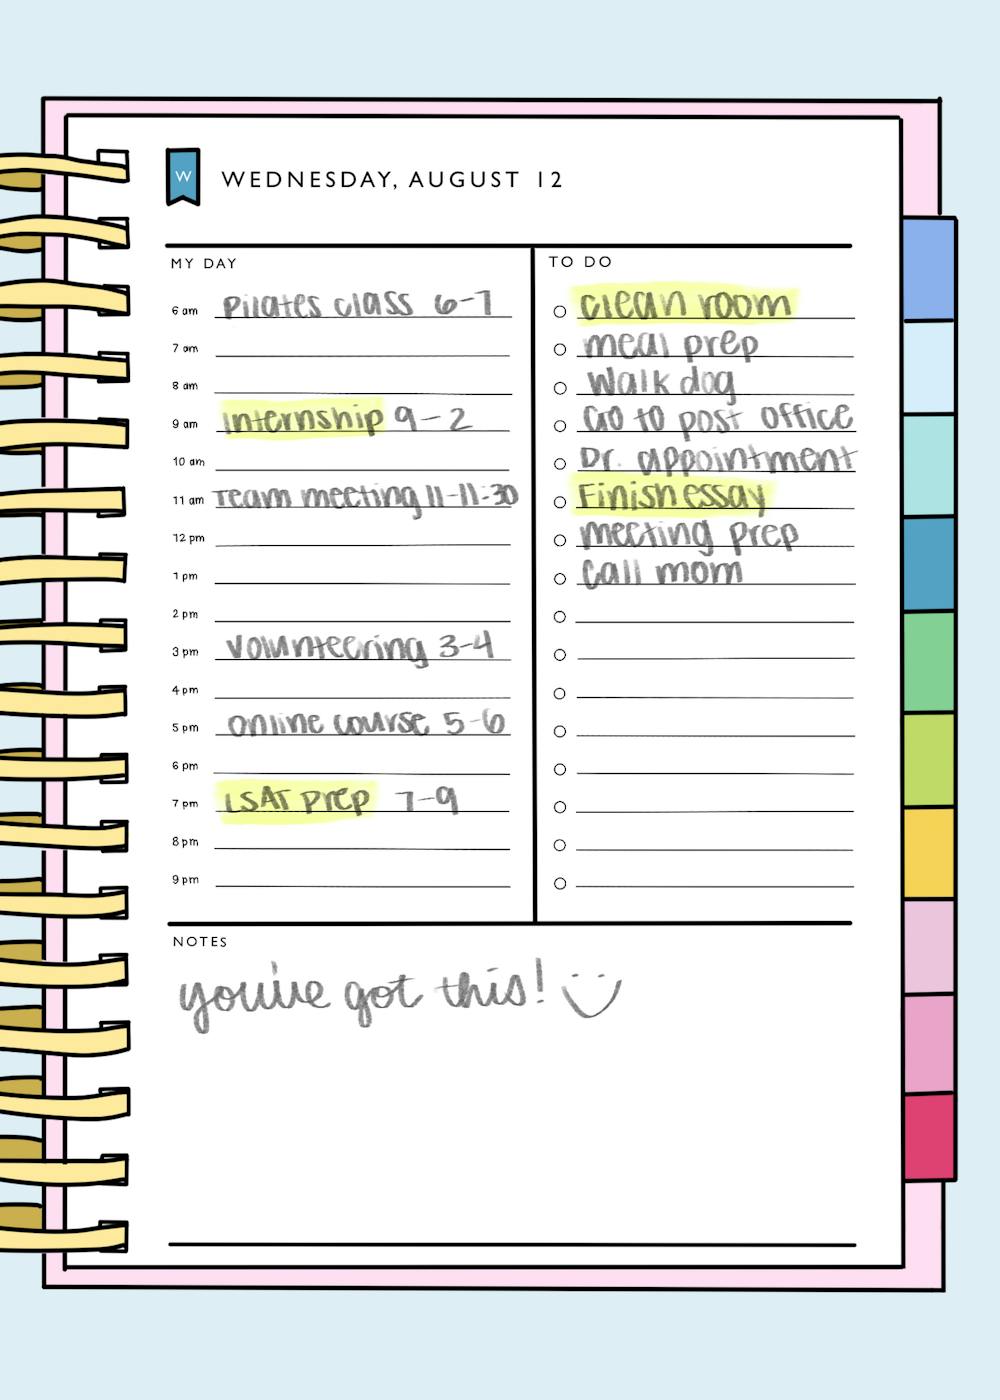 W
WEDNESDAY, AUGUST 12
MY DAY
6 am Pilates class 6-7
7 am
8 am
9 am Internship 9-2
10 am
11 am Team meeting 11-11:30
12 pm
1 pm
2 pm
3 pm volunteering 3-4
4 pm
5 pm online course 5-6
6 pm
7 pm LSAT Prep 7-9
8 pm
9 pm
TO DO
clean room
meal prep
Walk dog
Go to post office
Dr. appointment
Finish essay
meeting prep
Call mom
NOTES
you've got this!